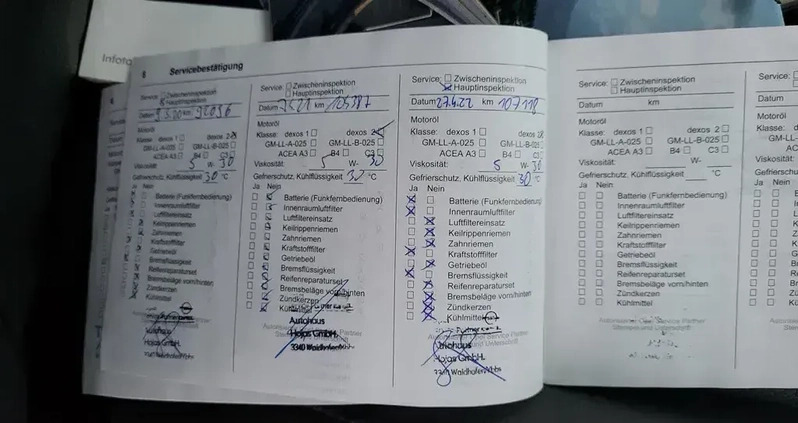 Infota
8 Servicebestätigung
Service: Zwischeninspektion
Hauptinspektion
Datum km
Motoröl
Klasse: dexos 1 dexos 2
GM-LL-A-025 GM-LL-B-025
ACEA A3 B4 C3
Viskosität: 5 W- 30
Gefrierschutz, Kühlflüssigkeit 30 °C
Ja Nein
Batterie (Funkfernbedienung)
Innenraumluftfilter
Luftfiltereinsatz
Keilrippenriemen
Zahnriemen
Kraftstofffilter
Getriebeöl
Bremsflüssigkeit
Reifenreparaturset
Bremsbeläge vorn/hinten
Zündkerzen
Kühlmittel
Service: Zwischeninspektion
Hauptinspektion
Datum 7.5.21 km 105387
Motoröl
Klasse: dexos 1 dexos 2
GM-LL-A-025 GM-LL-B-025
ACEA A3 B4 C3
Viskosität: 5 W- 30
Gefrierschutz, Kühlflüssigkeit °C
Ja Nein
Batterie (Funkfernbedienung)
Innenraumluftfilter
Luftfiltereinsatz
Keilrippenriemen
Zahnriemen
Kraftstofffilter
Getriebeöl
Bremsflüssigkeit
Reifenreparaturset
Bremsbeläge vorn/hinten
Zündkerzen
Kühlmittel
Autohaus
Hojas GmbH.
3340 Waidhofen
Service: Zwischeninspektion
Hauptinspektion
Datum 27.4.22 km 107118
Motoröl
Klasse: dexos 1 dexos 2
GM-LL-A-025 GM-LL-B-025
ACEA A3 B4 C3
Viskosität: 5 W- 30
Gefrierschutz, Kühlflüssigkeit 30 °C
Ja Nein
Batterie (Funkfernbedienung)
Innenraumluftfilter
Luftfiltereinsatz
Keilrippenriemen
Zahnriemen
Kraftstofffilter
Getriebeöl
Bremsflüssigkeit
Reifenreparaturset
Bremsbeläge vorn/hinten
Zündkerzen
Kühlmittel
Autohaus
Hojas GmbH.
Waidhofen/Ybbs
Service: Zwischeninspektion
Hauptinspektion
Datum km
Motoröl
Klasse: dexos 1 dexos 2
GM-LL-A-025 GM-LL-B-025
ACEA A3 B4 C3
Viskosität: W-
Gefrierschutz, Kühlflüssigkeit °C
Ja Nein
Batterie (Funkfernbedienung)
Innenraumluftfilter
Luftfiltereinsatz
Keilrippenriemen
Zahnriemen
Kraftstofffilter
Getriebeöl
Bremsflüssigkeit
Reifenreparaturset
Bremsbeläge vorn/hinten
Zündkerzen
Kühlmittel
Autorisierter Opel Service Partner
Stempel und Unterschrift
Service:
Datum
Motoröl
Klasse: de
GM-LL
AC
Viskosität:
Gefrierschutz,
Ja Nein